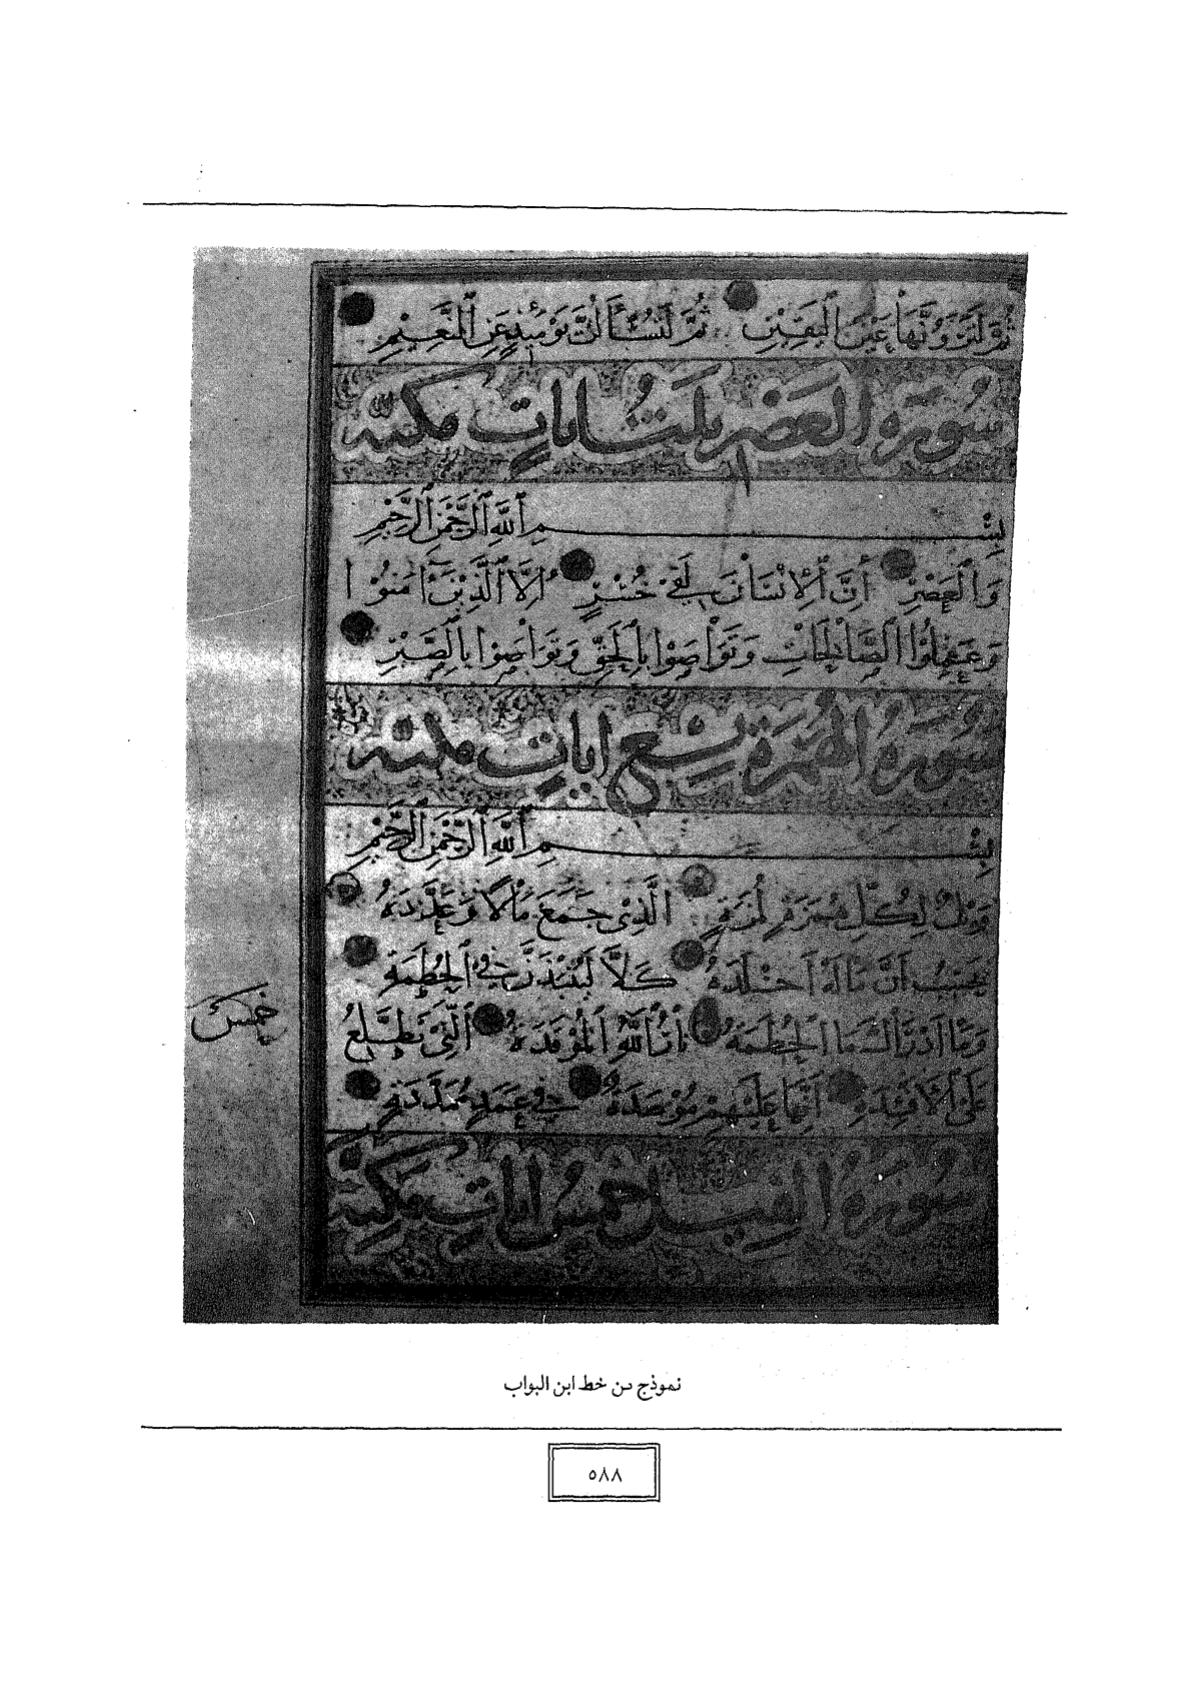 ثُمَّ لَتَرَوُنَّهَا عَيْنَ الْيَقِينِ ثُمَّ لَتُسْأَلُنَّ يَوْمَئِذٍ عَنِ النَّعِيمِ
سُورَة الْعَصْرِ ثلث ايات مكية
بِسْمِ اللَّهِ الرَّحْمَنِ الرَّحِيمِ
وَالْعَصْرِ إِنَّ الْإِنْسَانَ لَفِي خُسْرٍ إِلَّا الَّذِينَ آمَنُوا
وَعَمِلُوا الصَّالِحَاتِ وَتَوَاصَوْا بِالْحَقِّ وَتَوَاصَوْا بِالصَّبْرِ
سُورَةُ الْهُمَزَة تسع ايات مكية
بِسْمِ اللَّهِ الرَّحْمَنِ الرَّحِيمِ
وَيْلٌ لِكُلِّ هُمَزَةٍ لُمَزَةٍ الَّذِي جَمَعَ مَالًا وَعَدَّدَهُ
يَحْسِبُ أَنَّ مَالَهُ أَخْلَدَهُ كَلَّا لَيُنْبَذَنَّ فِي الْحُطَمَةِ
وَمَا أَدْرَاكَ مَا الْحُطَمَةُ نَارُ اللَّهِ الْمُوقَدَةُ الَّتِي تَطَّلِعُ
خمس
عَلَى الْأَفْئِدَةِ إِنَّهَا عَلَيْهِمْ مُؤْصَدَةٌ فِي عَمَدٍ مُمَدَّدَةٍ
سُورَةُ الْفِيل خمس ايات مكية
نموذج من خط ابن البواب
٥٨٨